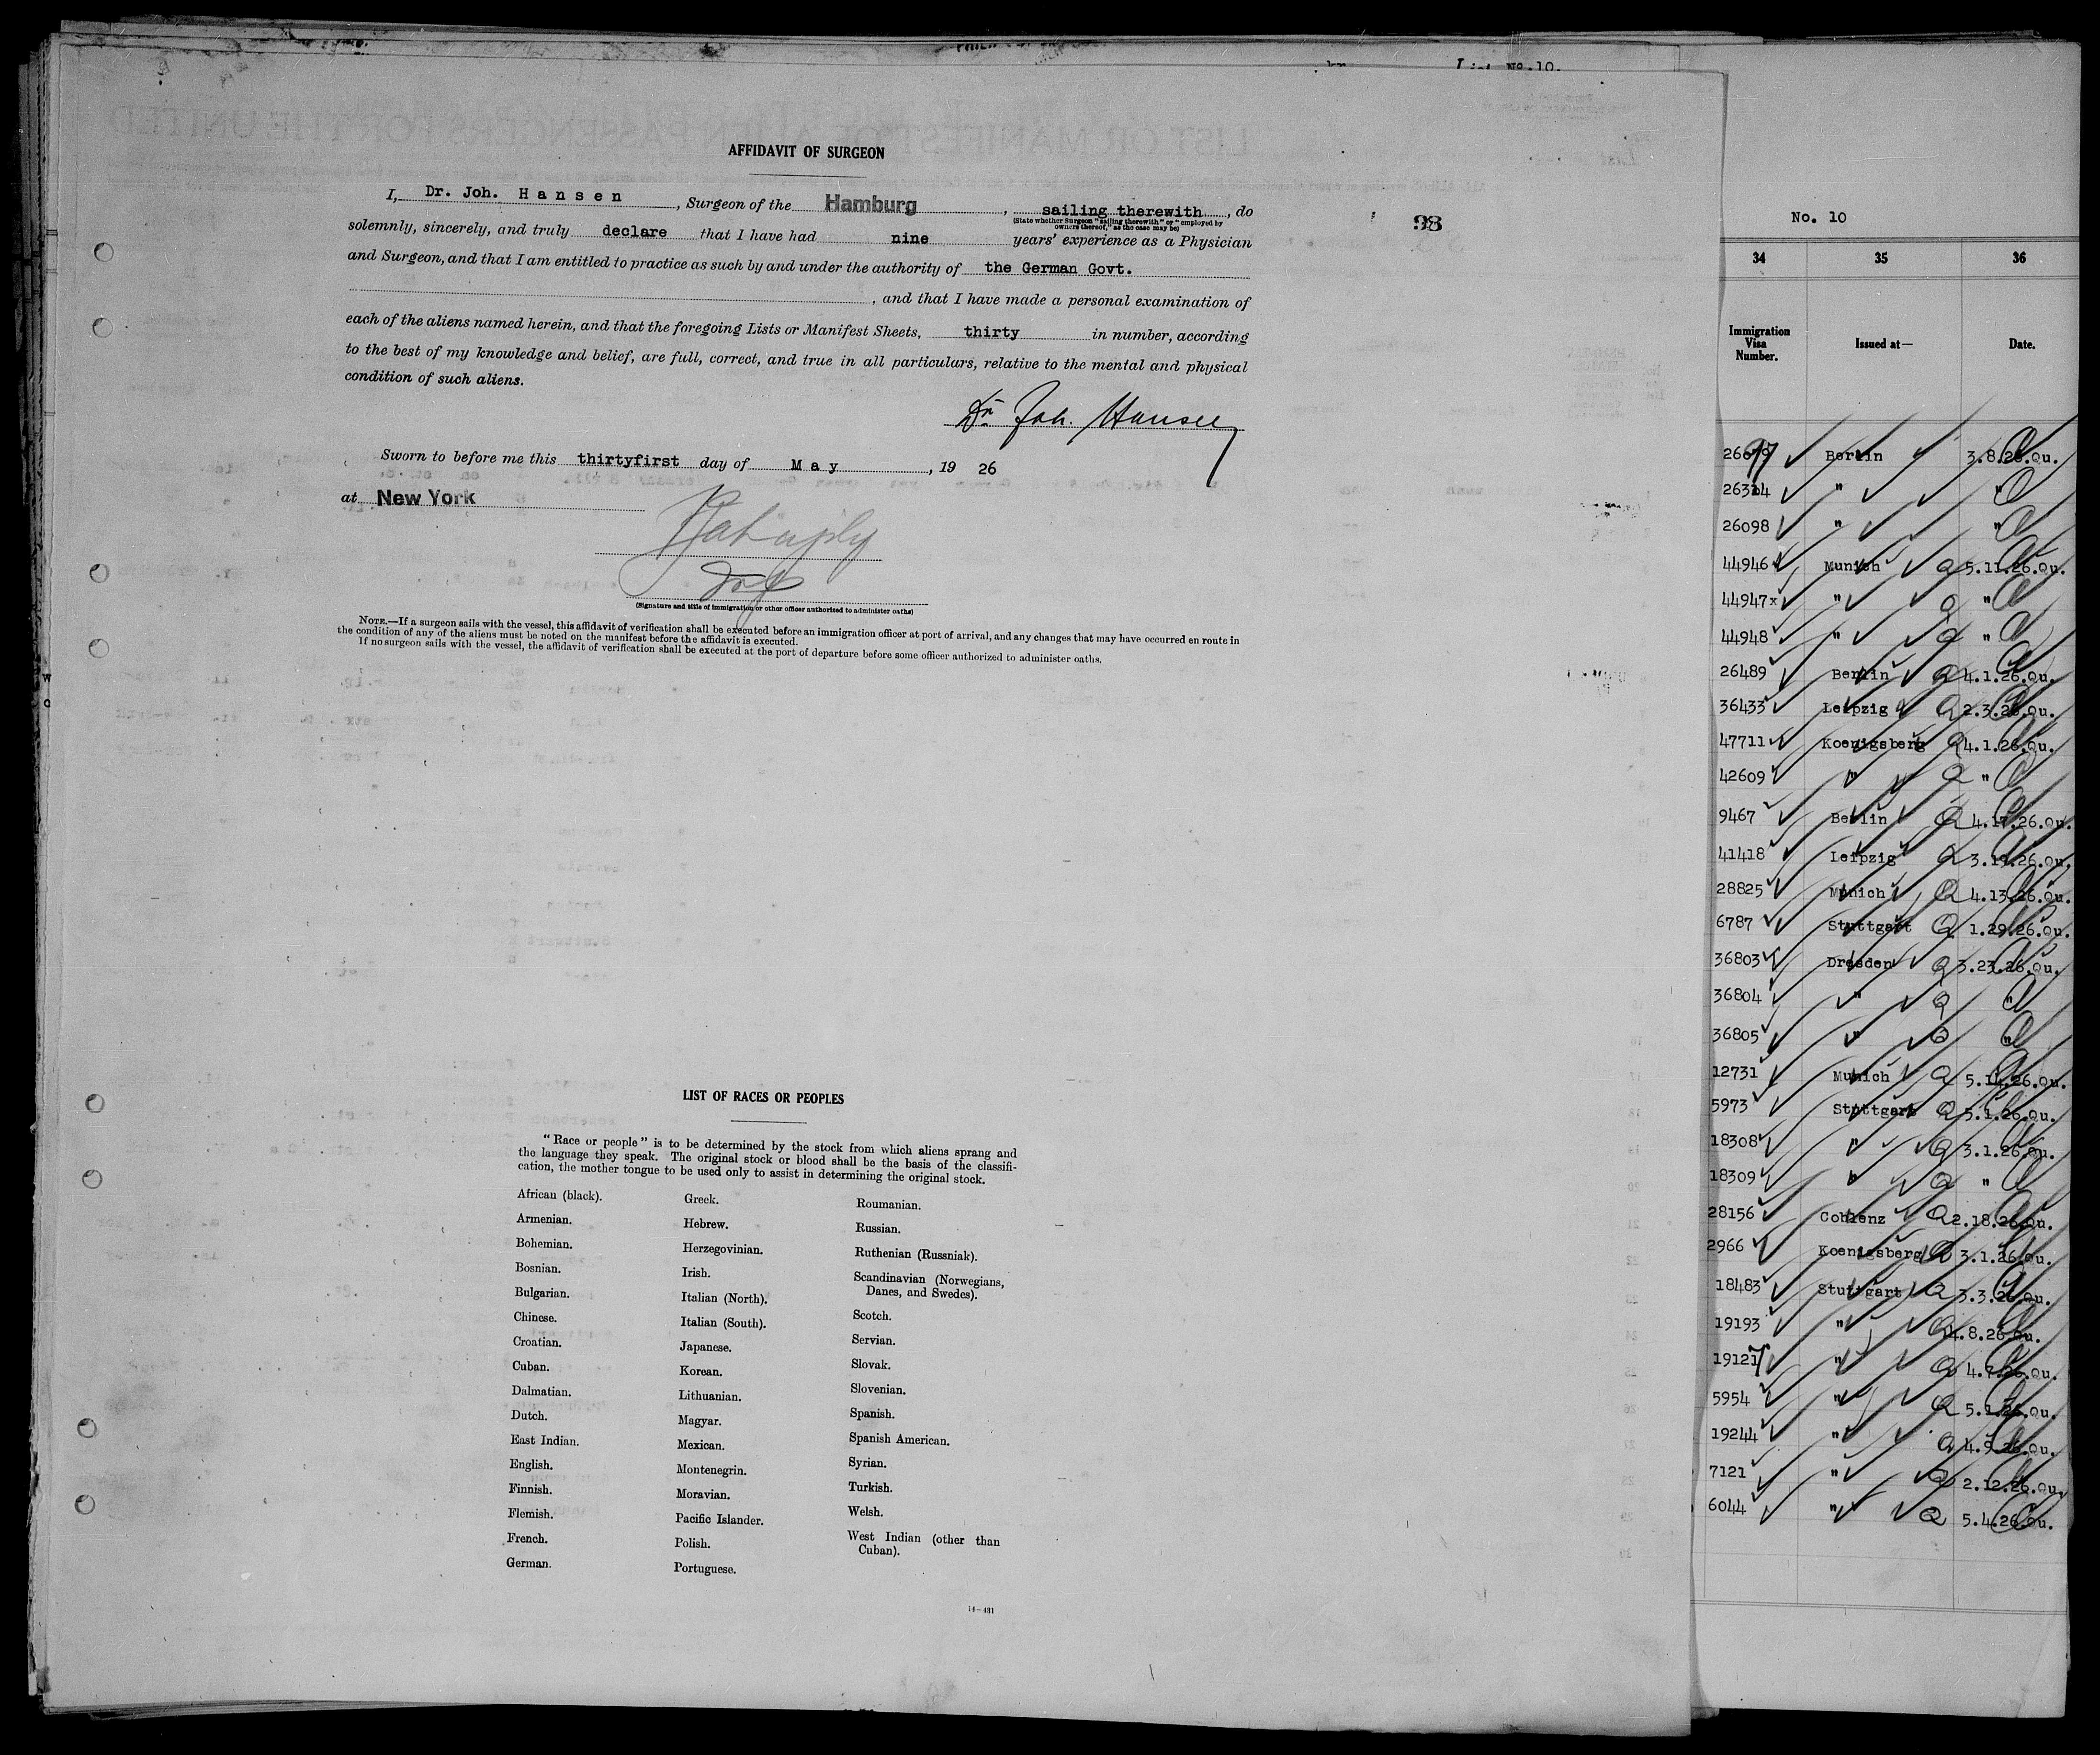 List No. 10.
AFFIDAVIT OF SURGEON
I, Dr. Joh. Hansen, Surgeon of the Hamburg, sailing therewith, do
(State whether Surgeon "sailing therewith" or "employed by
owners thereof," as the case may be)
solemnly, sincerely, and truly declare that I have had nine years' experience as a Physician
and Surgeon, and that I am entitled to practice as such by and under the authority of the German Govt.
, and that I have made a personal examination of
each of the aliens named herein, and that the foregoing Lists or Manifest Sheets, thirty in number, according
to the best of my knowledge and belief, are full, correct, and true in all particulars, relative to the mental and physical
condition of such aliens.
Dr. Joh. Hansen
Sworn to before me this thirtyfirst day of May, 19 26
at New York
(Signature and title of immigration or other officer authorized to administer oaths)
NOTE.—If a surgeon sails with the vessel, this affidavit of verification shall be executed before an immigration officer at port of arrival, and any changes that may have occurred en route in
the condition of any of the aliens must be noted on the manifest before the affidavit is executed.
If no surgeon sails with the vessel, the affidavit of verification shall be executed at the port of departure before some officer authorized to administer oaths.
LIST OF RACES OR PEOPLES
"Race or people" is to be determined by the stock from which aliens sprang and
the language they speak. The original stock or blood shall be the basis of the classifi-
cation, the mother tongue to be used only to assist in determining the original stock.
African (black).
Armenian.
Bohemian.
Bosnian.
Bulgarian.
Chinese.
Croatian.
Cuban.
Dalmatian.
Dutch.
East Indian.
English.
Finnish.
Flemish.
French.
German.
Greek.
Hebrew.
Herzegovinian.
Irish.
Italian (North).
Italian (South).
Japanese.
Korean.
Lithuanian.
Magyar.
Mexican.
Montenegrin.
Moravian.
Pacific Islander.
Polish.
Portuguese.
Roumanian.
Russian.
Ruthenian (Russniak).
Scandinavian (Norwegians,
Danes, and Swedes).
Scotch.
Servian.
Slovak.
Slovenian.
Spanish.
Spanish American.
Syrian.
Turkish.
Welsh.
West Indian (other than
Cuban).
14-431
98
No. 10
34 35 36
Immigration
Visa
Number.
Issued at—
Date.
Berlin 3.8.26.Qu.
26314 " "
26098 " "
44946 Munich Q 5.11.26.Qu.
44947x " Q "
44948 " Q "
26489 Berlin Q 4.1.26.Qu.
36433 Leipzig Q 2.3.26.Qu.
47711 Koenigsberg Q 4.1.26.Qu.
42609 " Q "
9467 Berlin Q 4.17.26.Qu.
41418 Leipzig Q 3.19.26.Qu.
28825 Munich Q 4.13.26.Qu.
6787 Stuttgart Q 1.29.26.Qu.
36803 Dresden Q 3.23.26.Qu.
36804 " Q "
36805 " Q "
12731 Munich Q 5.14.26.Qu.
5973 Stuttgart Q 5.1.26.Qu.
18308 " Q 3.1.26.Qu.
18309 " Q "
28156 Coblenz Q 2.18.26.Qu.
2966 Koenigsberg Q 3.1.26.Qu.
18483 Stuttgart Q 3.3.26.Qu.
19193 " Q 4.8.26.Qu.
19127 " Q 4.7.26.Qu.
5954 " Q 5.1.26.Qu.
19244 " Q 4.9.26.Qu.
7121 " Q 2.12.26.Qu.
6044 " Q 5.4.26.Qu.